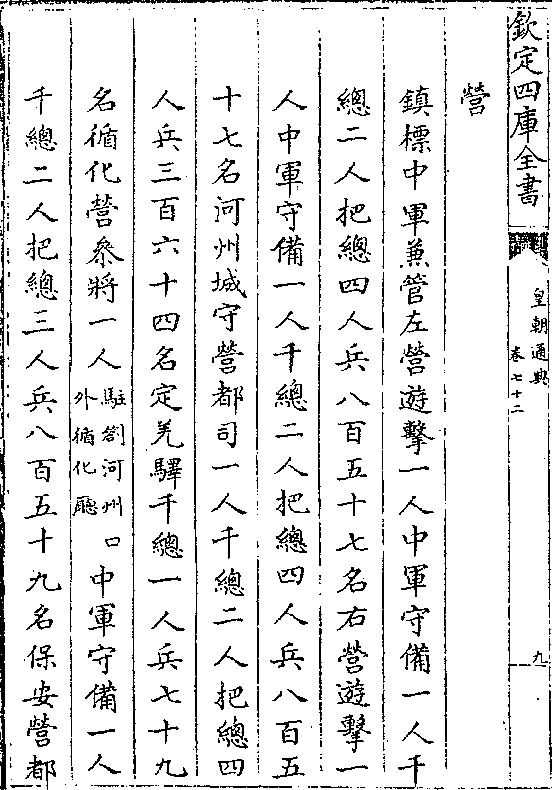 欽定四庫全書
皇朝通典
卷七十二
九
營
鎮標中軍兼管左營遊擊一人中軍守備一人千
總二人把總四人兵八百五十七名右營遊擊一
人中軍守備一人千總二人把總四人兵八百五
十七名河州城守營都司一人千總二人把總四
人兵三百六十四名定羌驛千總一人兵七十九
名循化營叅將一人駐劄河州口外循化廳中軍守備一人
千總二人把總三人兵八百五十九名保安營都